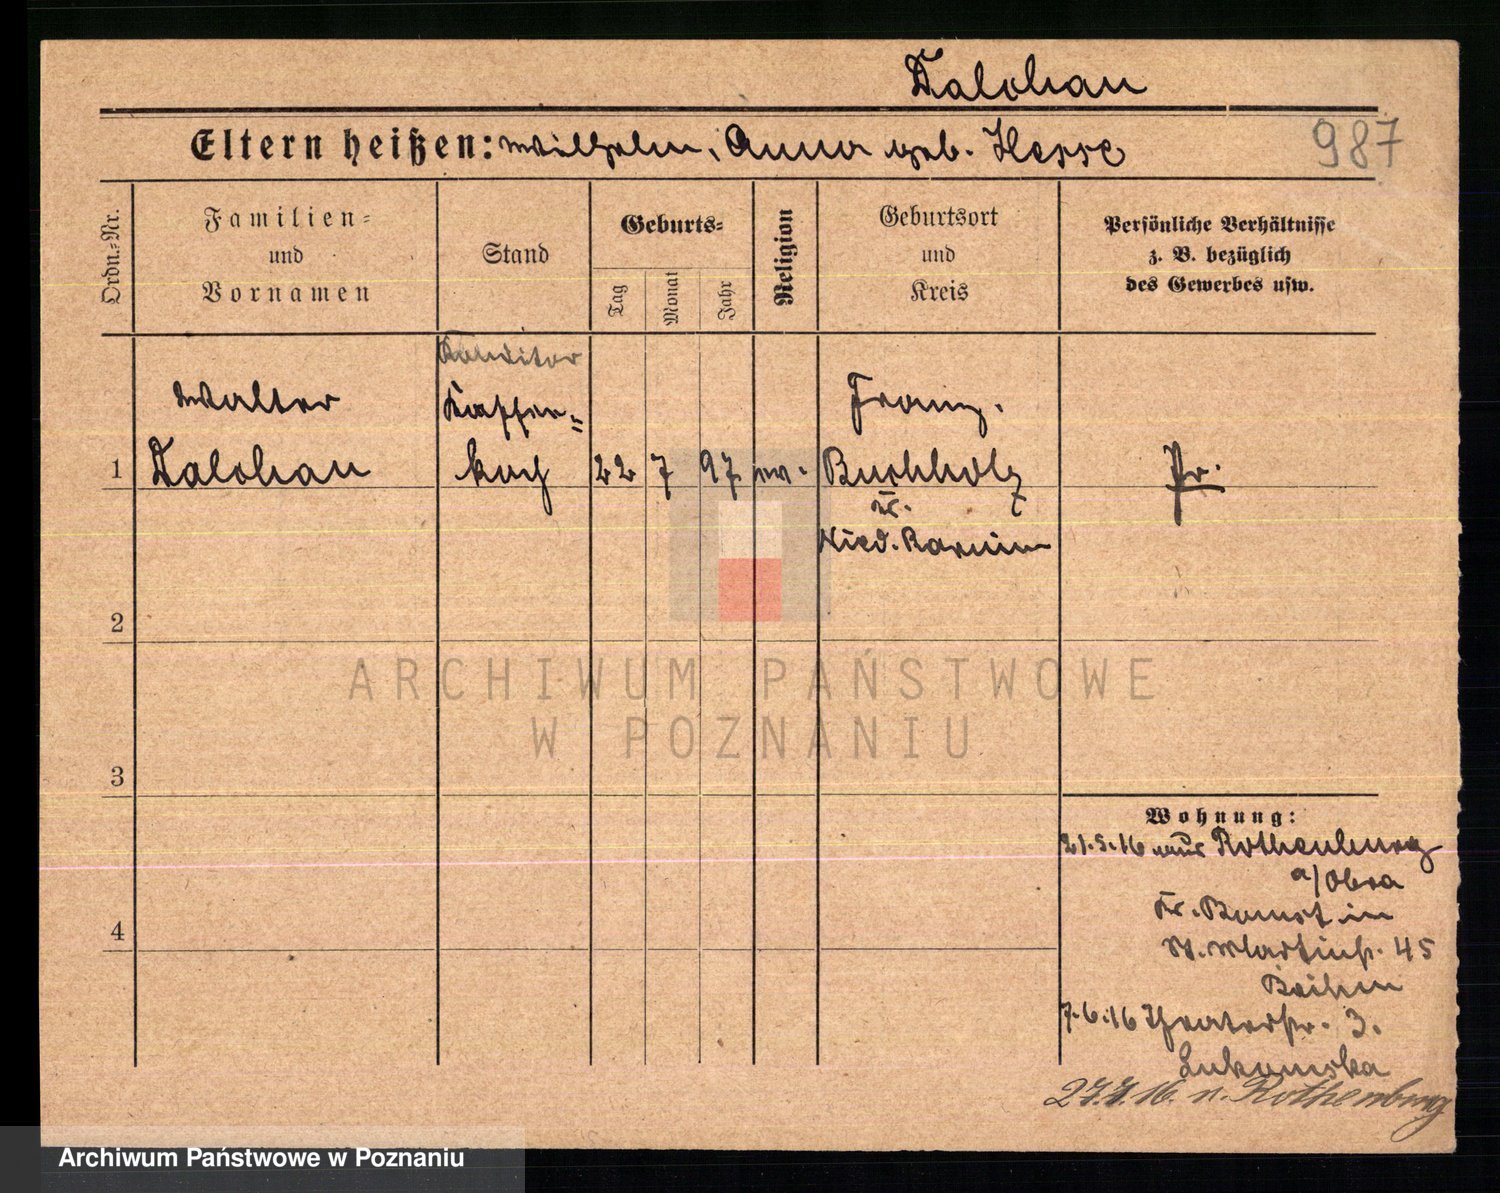 Dalchau
Eltern heißen: Wilhelm, Anna geb. Hesse
987
Ordn.-Nr.
Familien-
und
Vornamen
Stand
Geburts-
Tag
Monat
Jahr
Religion
Geburtsort
und
Kreis
Persönliche Verhältnisse
z. B. bezüglich
des Gewerbes usw.
Konditor
Walter
Kaffee=
Franz.
1 Dalchau
koch
22 7 97 ev. Buchholz
Pr.
Kr.
Nied. Barnim
2
ARCHIWUM PAŃSTWOWE
W POZNANIU
3
Wohnung:
21.5.16 aus Rothenburg
a/Obra
Kr. Bomst in
4
St. Martinstr. 45
7.6.16 Theaterstr. 3.
Lukomska
27.7.16. n. Rothenburg
Archiwum Państwowe w Poznaniu